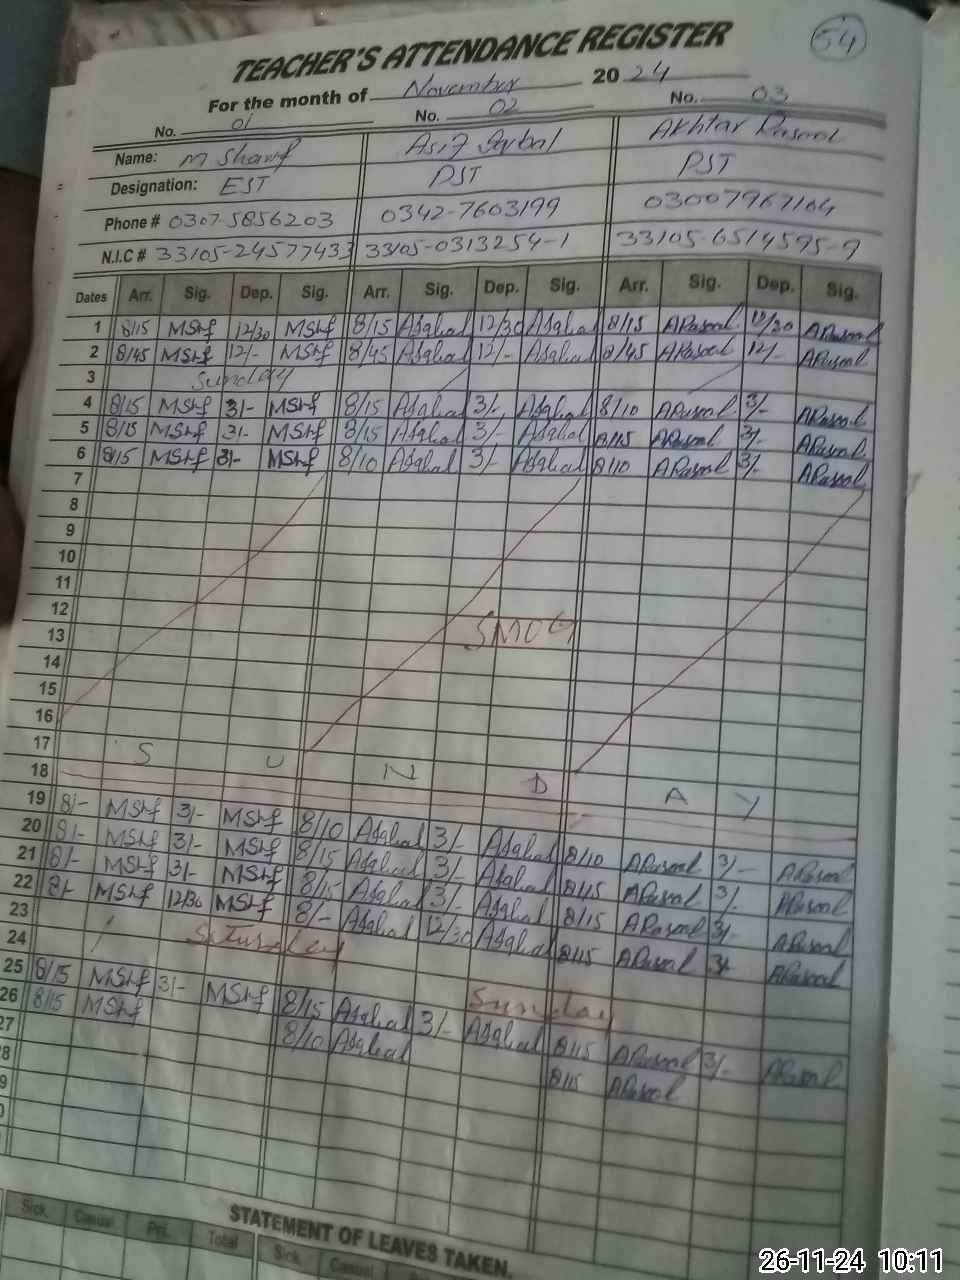 54
TEACHER'S ATTENDANCE REGISTER
For the month of November 2024
No. 01 No. 02 No. 03
Name: M Sharif Asif Iqbal Akhtar Rasool
Designation: EST PST PST
Phone # 0307-5856203 0342-7603199 03007967164
N.I.C # 33105-24577433 33105-0313254-1 33105-6514595-9
Dates Arr. Sig. Dep. Sig. Arr. Sig. Dep. Sig. Arr. Sig. Dep. Sig.
1 8/15 MShf 12/30 MShf 8/15 Asqbal 12/30 Asqbal 8/15 ARasool 12/30 ARasool
2 8/45 MShf 12/- MShf 8/45 Asqbal 12/- Asqbal 8/45 ARasool 12/- ARasool
3 Sunday
4 8/15 MShf 3/- MShf 8/15 Asqbal 3/- Asqbal 8/10 ARasool 3/- ARasool
5 8/15 MShf 3/- MShf 8/15 Asqbal 3/- Asqbal 8/15 ARasool 3/- ARasool
6 8/15 MShf 3/- MShf 8/10 Asqbal 3/- Asqbal 8/10 ARasool 3/- ARasool
7
8
9
10
11
12
13 SMOG
14
15
16
17
18 S U N D A Y
19 8/- MShf 3/- MShf 8/10 Asqbal 3/- Asqbal 8/10 ARasool 3/- ARasool
20 8/- MShf 3/- MShf 8/15 Asqbal 3/- Asqbal 8/15 ARasool 3/- ARasool
21 8/- MShf 3/- MShf 8/15 Asqbal 3/- Asqbal 8/15 ARasool 3/- ARasool
22 8/- MShf 12/30 MShf 8/- Asqbal 12/30 Asqbal 8/15 ARasool 3/- ARasool
23 Saturday
24 Sunday
25 8/15 MShf 3/- MShf 8/15 Asqbal 3/- Asqbal 8/15 ARasool 3/- ARasool
26 8/15 MShf 8/10 Asqbal 8/15 ARasool
27
8
9
0
STATEMENT OF LEAVES TAKEN.
Sick. Casual Pri. Total Sick. Casual
26-11-24 10:11